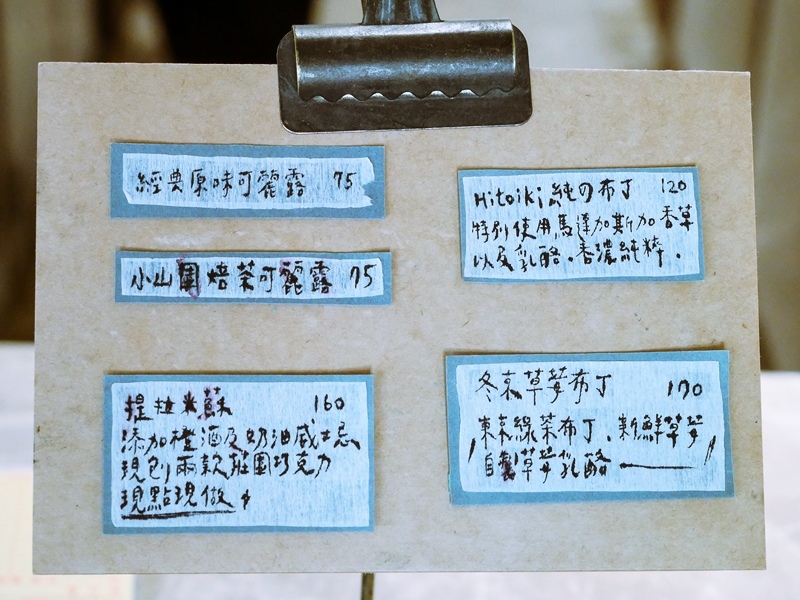 經典原味可麗露 75
小山園焙茶可麗露 75
提拉米蘇 160
添加橙酒及奶油威士忌
現刨兩款莊園巧克力
現點現做
Hitoiki純の布丁 120
特別使用馬達加斯加香草
以及乳酪。香濃純粹.
冬京草莓布丁 170
東京綠茶布丁、新鮮草莓
自製草莓乳酪